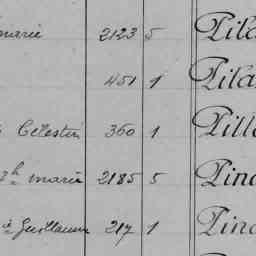 marie 2123 5 Pila
451 1 Pila
Célestin 360 1 Pill
h marie 2185 5 Pin
Guillaume 217 1 Pin